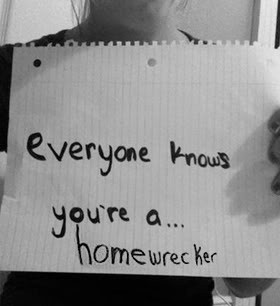 everyone knows
you're a...
homewrecker